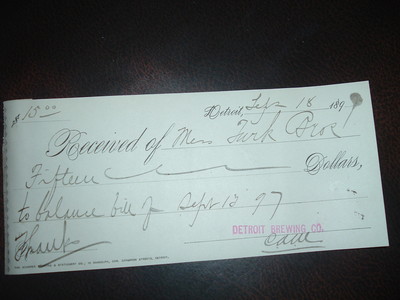 $15.00
Detroit, Sept 18 189
Received of Mess Turk Bros
Fifteen Dollars,
to balance bill of Sept 12 97
Thanks DETROIT BREWING CO.